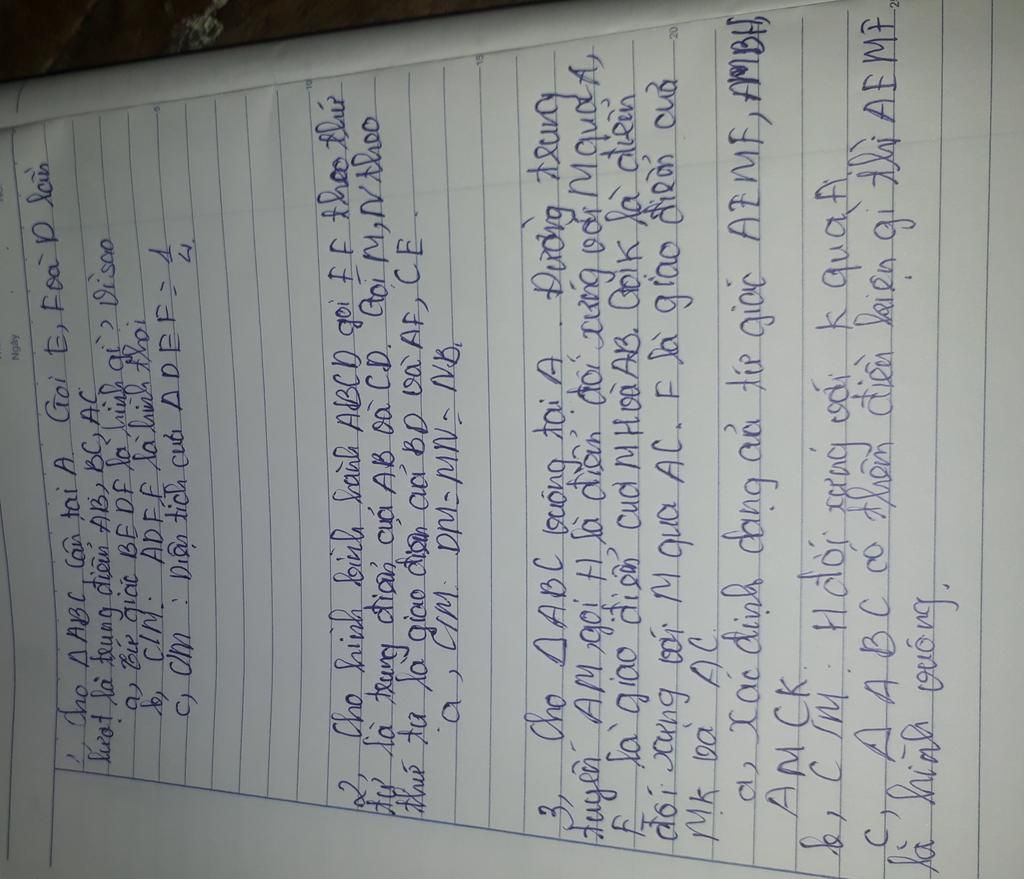 Ngày
1, Cho ΔABC cân tại A. Gọi E, F và D lần
lượt là trung điểm AB, BC, AC
a, Tứ giác BEDF là hình gì, Vì sao
b, C/M: ADFE là hình thoi
c, CM: Diện tích của ΔDEF = 1/4
2, Cho hình bình hành ABCD gọi E F theo thứ
tự là trung điểm của AB và CD. Gọi M, N theo
thứ tự là giao điểm của BD và AF, CE
a, C/M: DM = MN = NB.
3, Cho ΔABC vuông tại A. Đường trung
tuyến AM, gọi H là điểm đối xứng với M qua A,
E là giao điểm của MH và AB. Gọi K là điểm
đối xứng với M qua AC. F là giao điểm của
MK và AC
a, Xác định dạng của tứ giác AEMF, AMBH,
AMCK
b, CM: H đối xứng với K qua A
c, Δ ABC có thêm điều kiện gì thì AEMF
là hình vuông.
5
10
15
20
25